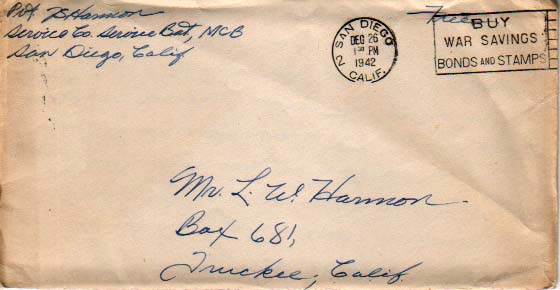 Pvt Harmon
Service Co. Service Bat, MCB
San Diego, Calif
SAN DIEGO
2
DEC 26
1 30 PM
1942
CALIF.
Free
BUY
WAR SAVINGS
BONDS AND STAMPS
Mr. L. W. Harmon
Box 681,
Truckee, Calif.